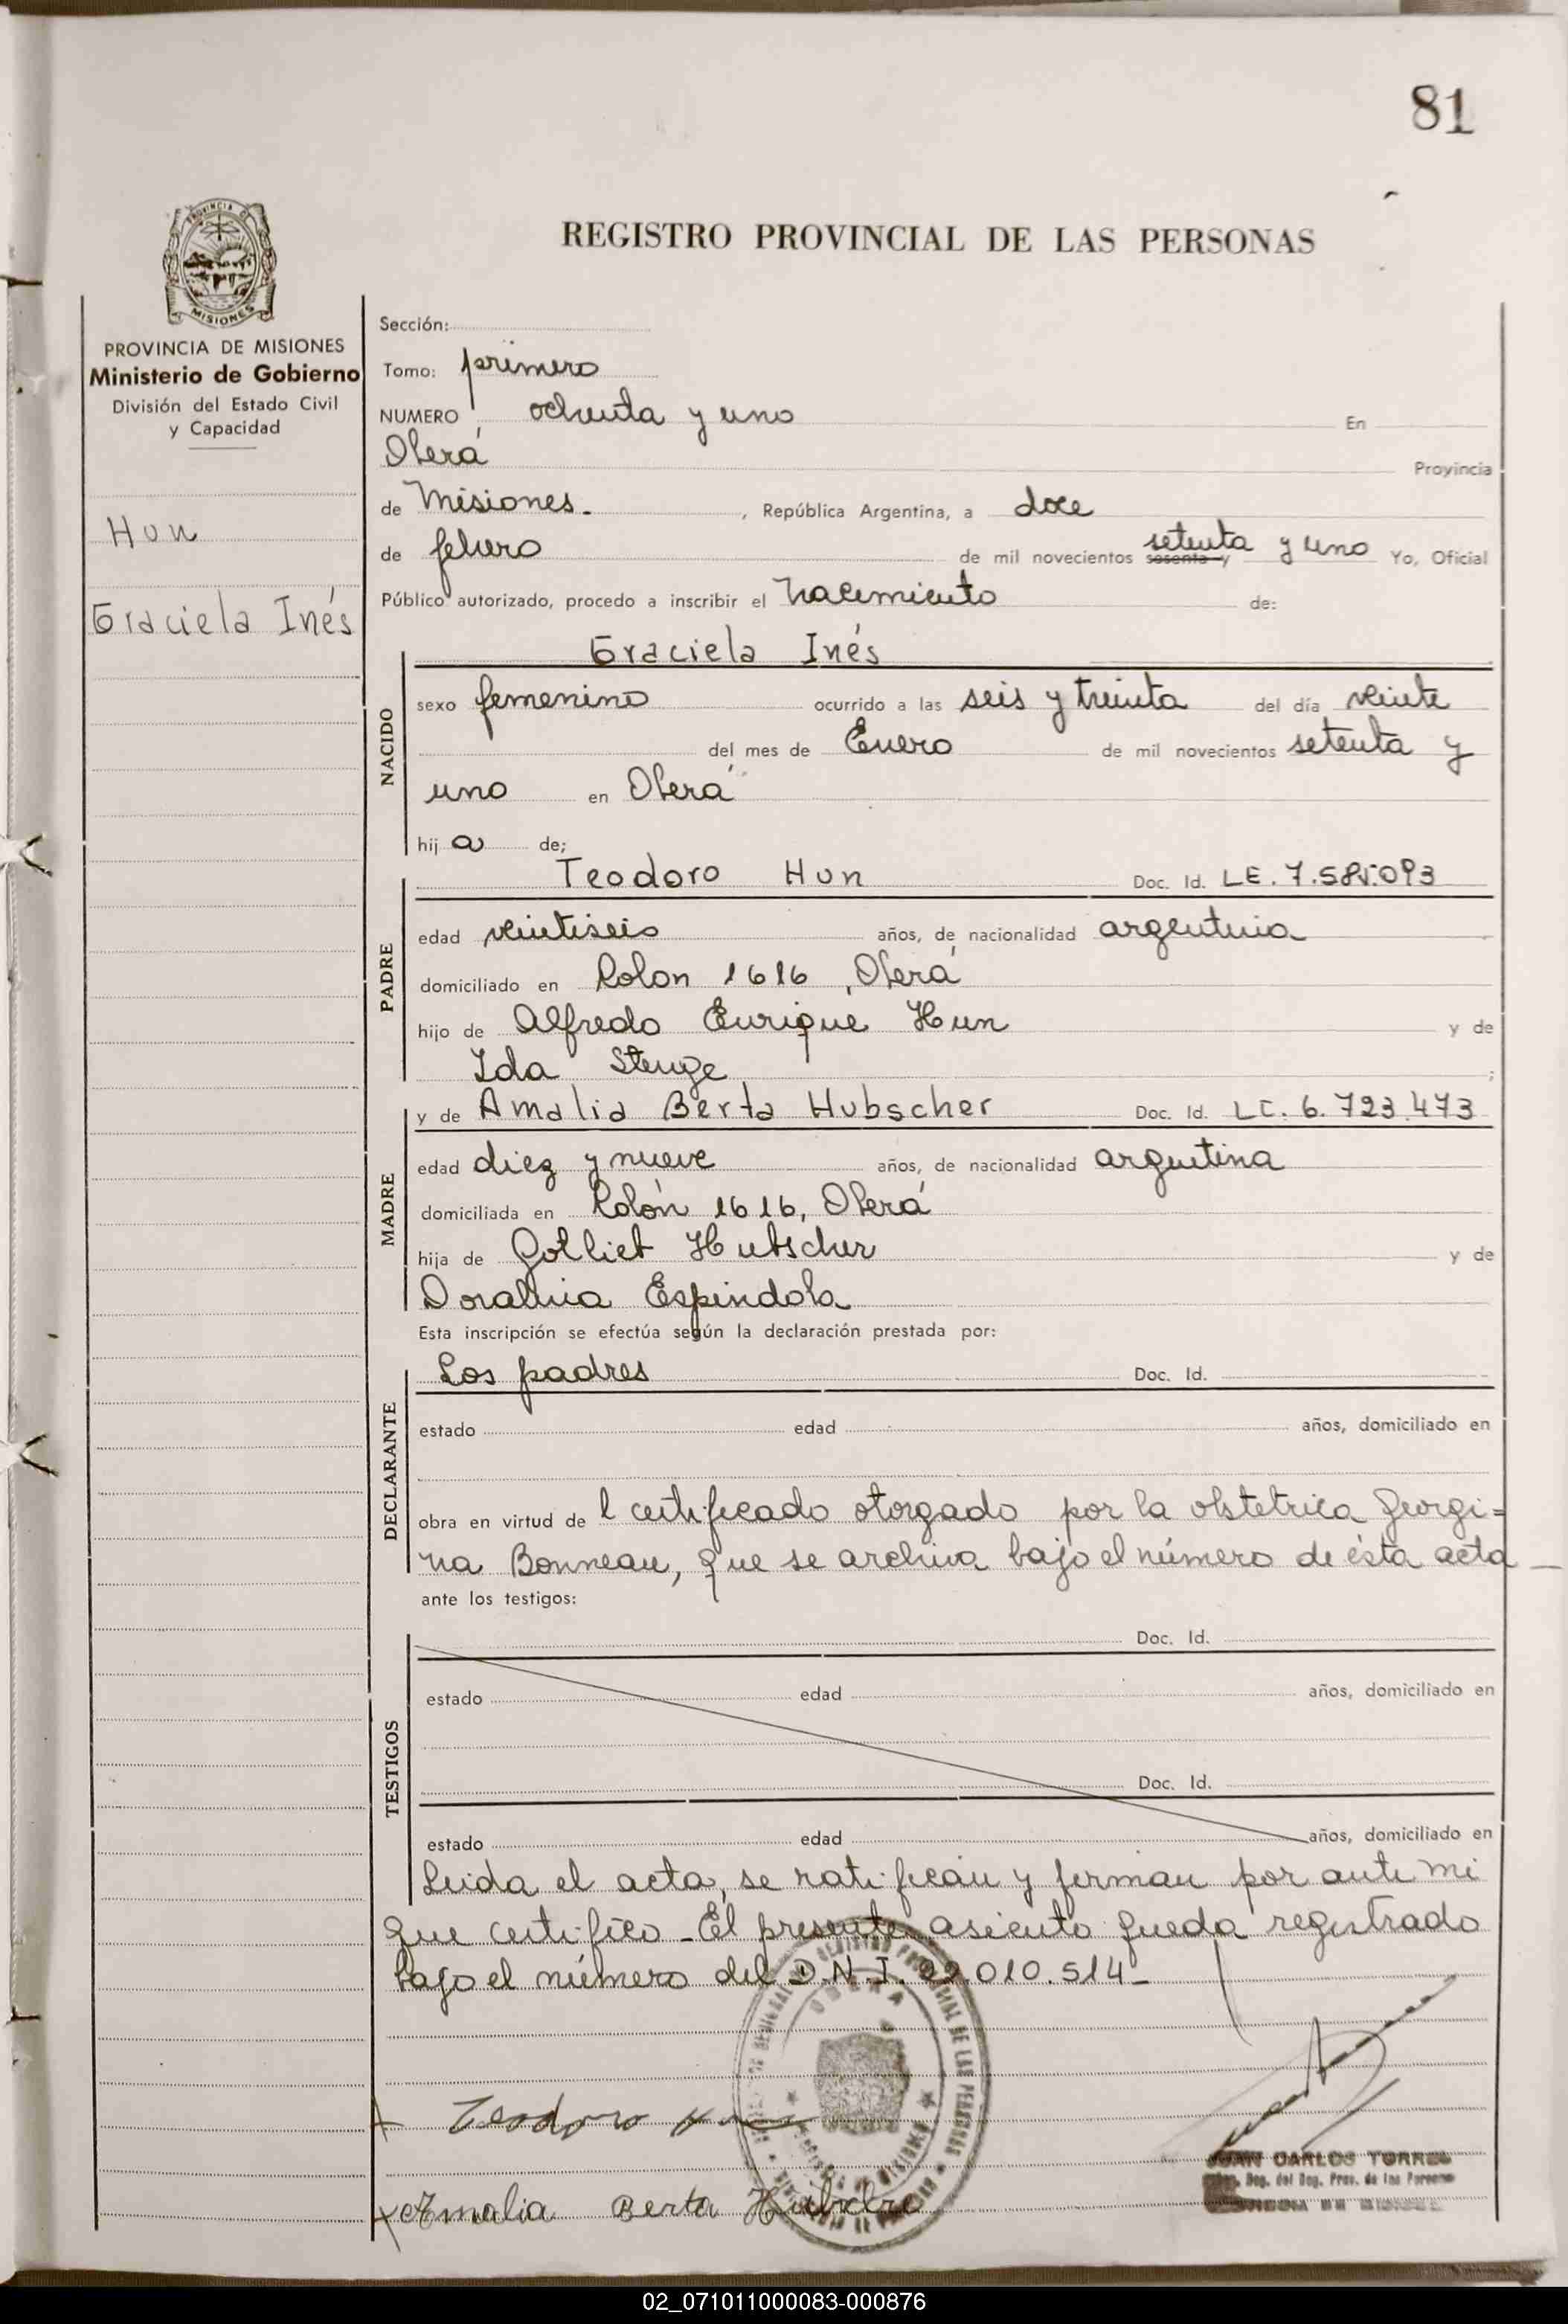 81
REGISTRO PROVINCIAL DE LAS PERSONAS
PROVINCIA DE
MISIONES
PROVINCIA DE MISIONES
Ministerio de Gobierno
División del Estado Civil
y Capacidad
Hun
Graciela Inés
Sección:
Tomo: primero
NUMERO ochenta y uno En
Oberá Provincia
de Misiones. , República Argentina, a doce
de febrero de mil novecientos sesenta y setenta y uno Yo, Oficial
Público autorizado, procedo a inscribir el nacimiento de:
NACIDO
Graciela Inés
sexo femenino ocurrido a las seis y treinta del día veinte
del mes de Enero de mil novecientos setenta y
uno en Oberá
hij a de;
PADRE
Teodoro Hun Doc. Id. LE. 7.585.093
edad veintiseis años, de nacionalidad argentina
domiciliado en Colon 1616, Oberá
hijo de Alfredo Enrique Hun y de
Ida Stenge ;
MADRE
y de Amalia Berta Hubscher Doc. Id. LC. 6.723.473
edad diez y nueve años, de nacionalidad argentina
domiciliada en Colón 1616, Oberá
hija de Gotliet Hubscher y de
Doralina Espindola
Esta inscripción se efectúa según la declaración prestada por:
DECLARANTE
Los padres Doc. Id.
estado edad años, domiciliado en
obra en virtud de l certificado otorgado por la obstetrica Georgi=
na Bonneau, que se archiva bajo el número de ésta acta
ante los testigos:
TESTIGOS
Doc. Id.
estado edad años, domiciliado en
Doc. Id.
estado edad años, domiciliado en
Leida el acta, se ratifican y firman por ante mi
que certifico _ El presente asiento queda registrado
bajo el número del D.N.I. 22.010.514_
OBERA
x Teodoro Hun
x Amalia Berta
JUAN CARLOS TORRES